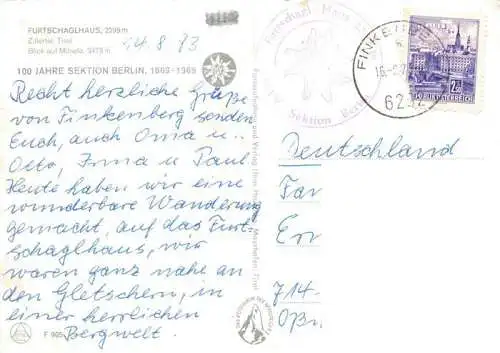 FURTSCHAGLHAUS, 2295 m
Zillertal, Tirol
Blick auf Mösele, 3473 m
14.8.73
100 JAHRE SEKTION BERLIN, 1869-1969
Recht herzliche Grüße
von Finkenberg senden
Euch, auch Oma u.
Otto, Irma u. Paul
Heute haben wir eine
wunderbare Wanderung
gemacht, auf das Furt-
schaglhaus, wir
waren ganz nahe an
den Gletschern, in
einer herrlichen
Bergwelt.
Furtschagl Haus
Sektion Berlin
FINKENBE
REPUBLIK ÖSTERREICH
Deutschland
Fa
Er
714